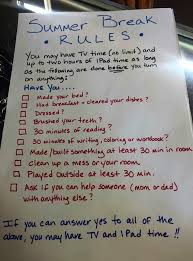 Summer Break
• RULES •
You may have TV time (no limit) and
up to two hours of iPad time as long
as the following are done before you turn
on anything:
Have you....
Made your bed?
Had breakfast + cleared your dishes?
Dressed?
Brushed your teeth?
30 minutes of reading?
30 minutes of writing, coloring or workbook?
Made/built something at least 30 min in room
Clean up a mess or your room.
Played outside at least 30 min.
Ask if you can help someone (mom or dad)
with anything else?
If you can answer yes to all of the
above, you may have TV and iPad time!!